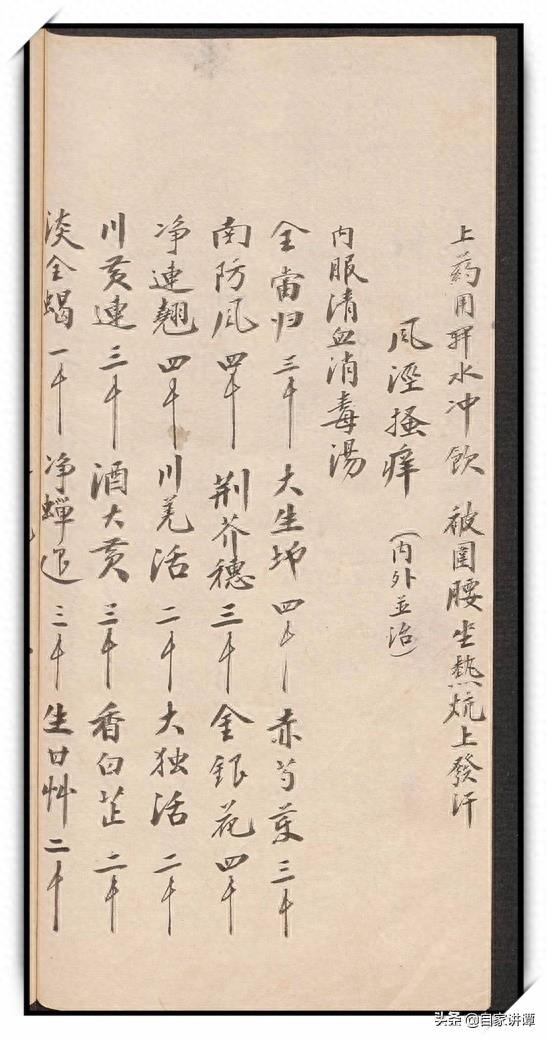 上药用开水冲飲 被圍腰坐熱炕上發汗
風溼搔痒 (内外並治)
内服清血消毒湯
全當归 三千 大生地 四千 赤芍药 三千
南防風 四千 荆芥穗 三千 金銀花 四千
净連翘 四千 川羌活 二千 大独活 二千
川黄連 三千 酒大黄 三千 香白芷 二千
淡全蝎 一千 净蟬退 三千 生甘艸 二千
头条 @自家讲谭